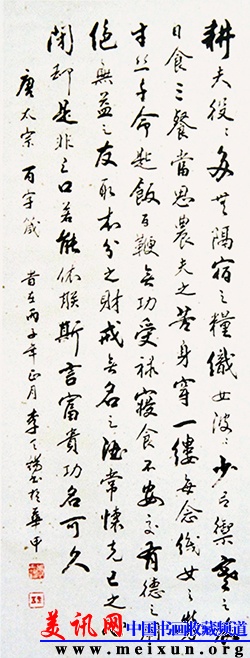 耕夫役役多无隔宿之糧織女波波少有禦寒之衣
日食三餐當思農夫之苦身穿一缕每念織女之勞
寸丝千命匙飯百鞭无功受禄寝食不安交有德之朋
绝無益之友取本分之財戒无名之酒常懷克己之心
闭却是非之口若能依朕斯言富貴功名可久
唐太宗 百字箴 岁在丙子年正月 李
美讯网
中国书画收藏频道
www.meixun.org